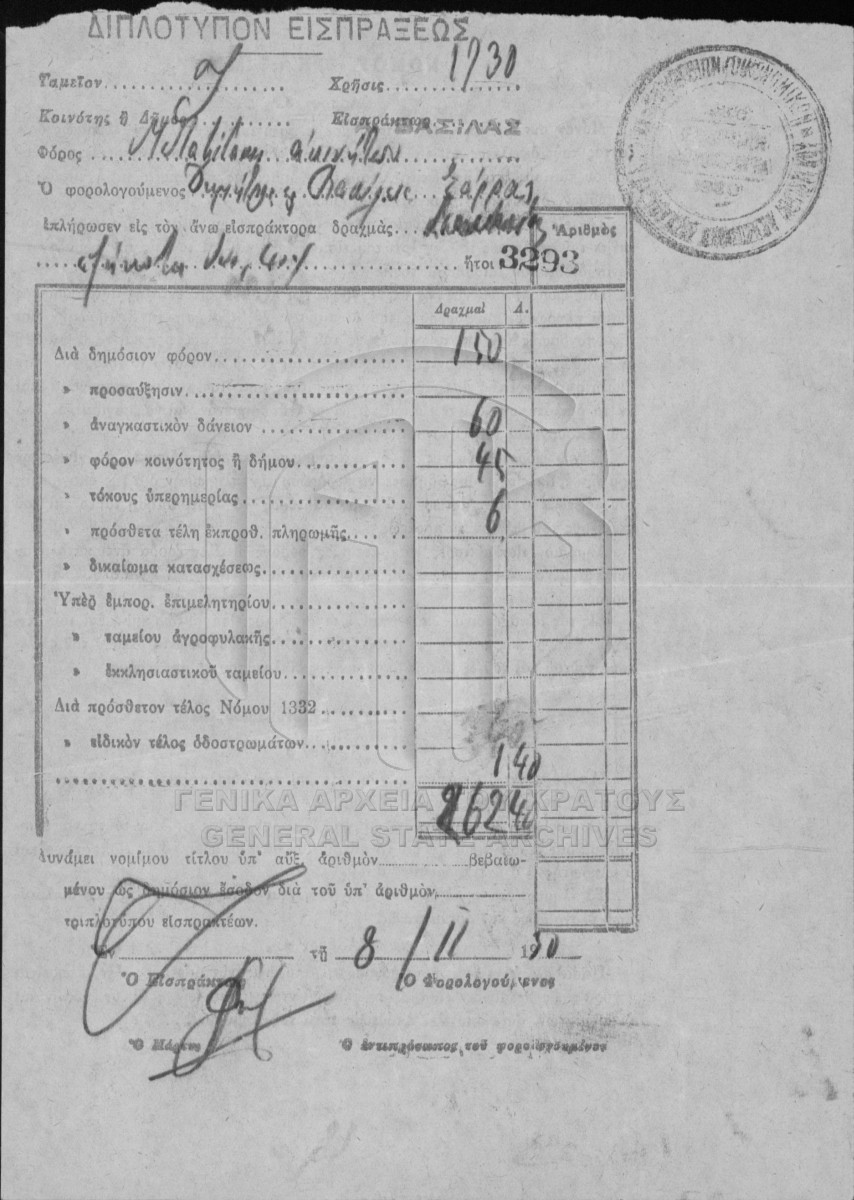 ΔΙΠΛΟΤΥΠΟΝ ΕΙΣΠΡΑΞΕΩΣ
Ταμεῖον Χρῆσις 1930
Κοινότης ἢ Δῆμος Εἰσπράκτωρ ΒΑΣΙΛΑΣ
Φόρος Μεταβίβασης ἀκινήτων
Ὁ φορολογούμενος Δημήτριος Βασίλειος
ἐπλήρωσεν εἰς τὸν ἄνω εἰσπράκτορα δραχμὰς Διακοσίας Ἀριθμὸς
ἑξήκοντα δύο, 40% ἤτοι 3293
Δραχμαὶ Λ.
Διὰ δημόσιον φόρον 150
» προσαύξησιν
» ἀναγκαστικὸν δάνειον 60
» φόρον κοινότητος ἢ δήμου 45
» τόκους ὑπερημερίας 6
» πρόσθετα τέλη ἐκπροθ. πληρωμῆς
» δικαίωμα κατασχέσεως
Ὑπὲρ ἐμπορ. ἐπιμελητηρίου
» ταμείου ἀγροφυλακῆς
» ἐκκλησιαστικοῦ ταμείου
Διὰ πρόσθετον τέλος Νόμου 1332
» εἰδικὸν τέλος ὁδοστρωμάτων
1 40
262 40
ΓΕΝΙΚΑ ΑΡΧΕΙΑ ΤΟΥ ΚΡΑΤΟΥΣ
GENERAL STATE ARCHIVES
Δυνάμει νομίμου τίτλου ὑπ' αὔξ. ἀριθμὸν βεβαιω-
μένου ὡς δημόσιον ἔσοδον διὰ τοῦ ὑπ' ἀριθμὸν
τριπλοτύπου εἰσπρακτέων.
Ἐν τῇ 8/11 1930
Ὁ Εἰσπράκτωρ Ὁ Φορολογούμενος
Ὁ Μάρτυς Ὁ ἀντιπρόσωπος τοῦ φορολογουμένου